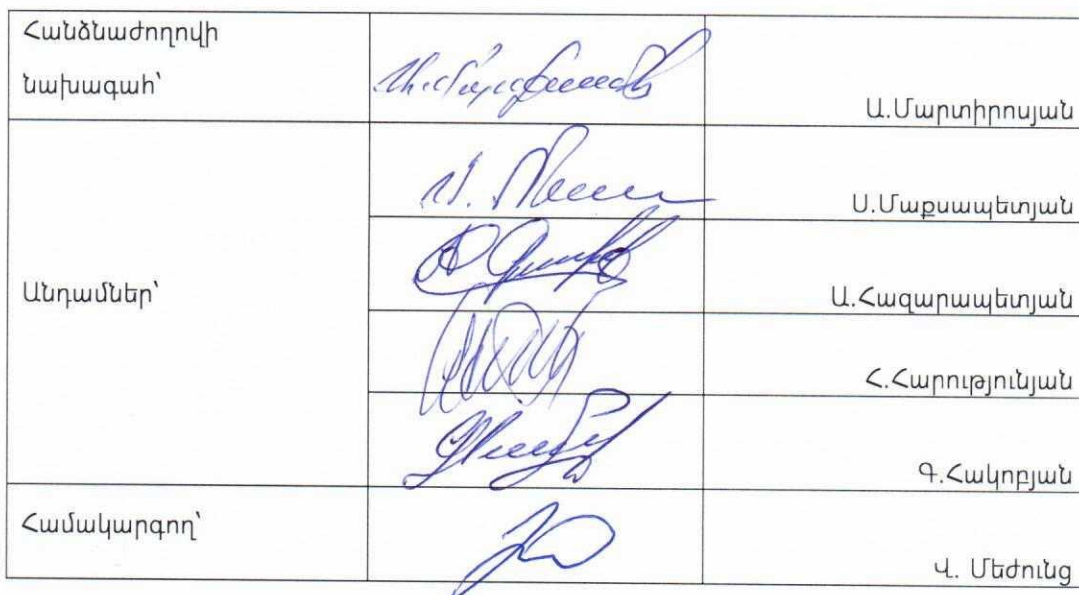 Հանձնաժողովի
նախագահ՝
Ա.Մարտիրոսյան
Անդամներ՝
Ս.Մաքսապետյան
Ա.Հազարապետյան
Հ.Հարությունյան
Գ.Հակոբյան
Համակարգող՝
Վ. Մեժունց